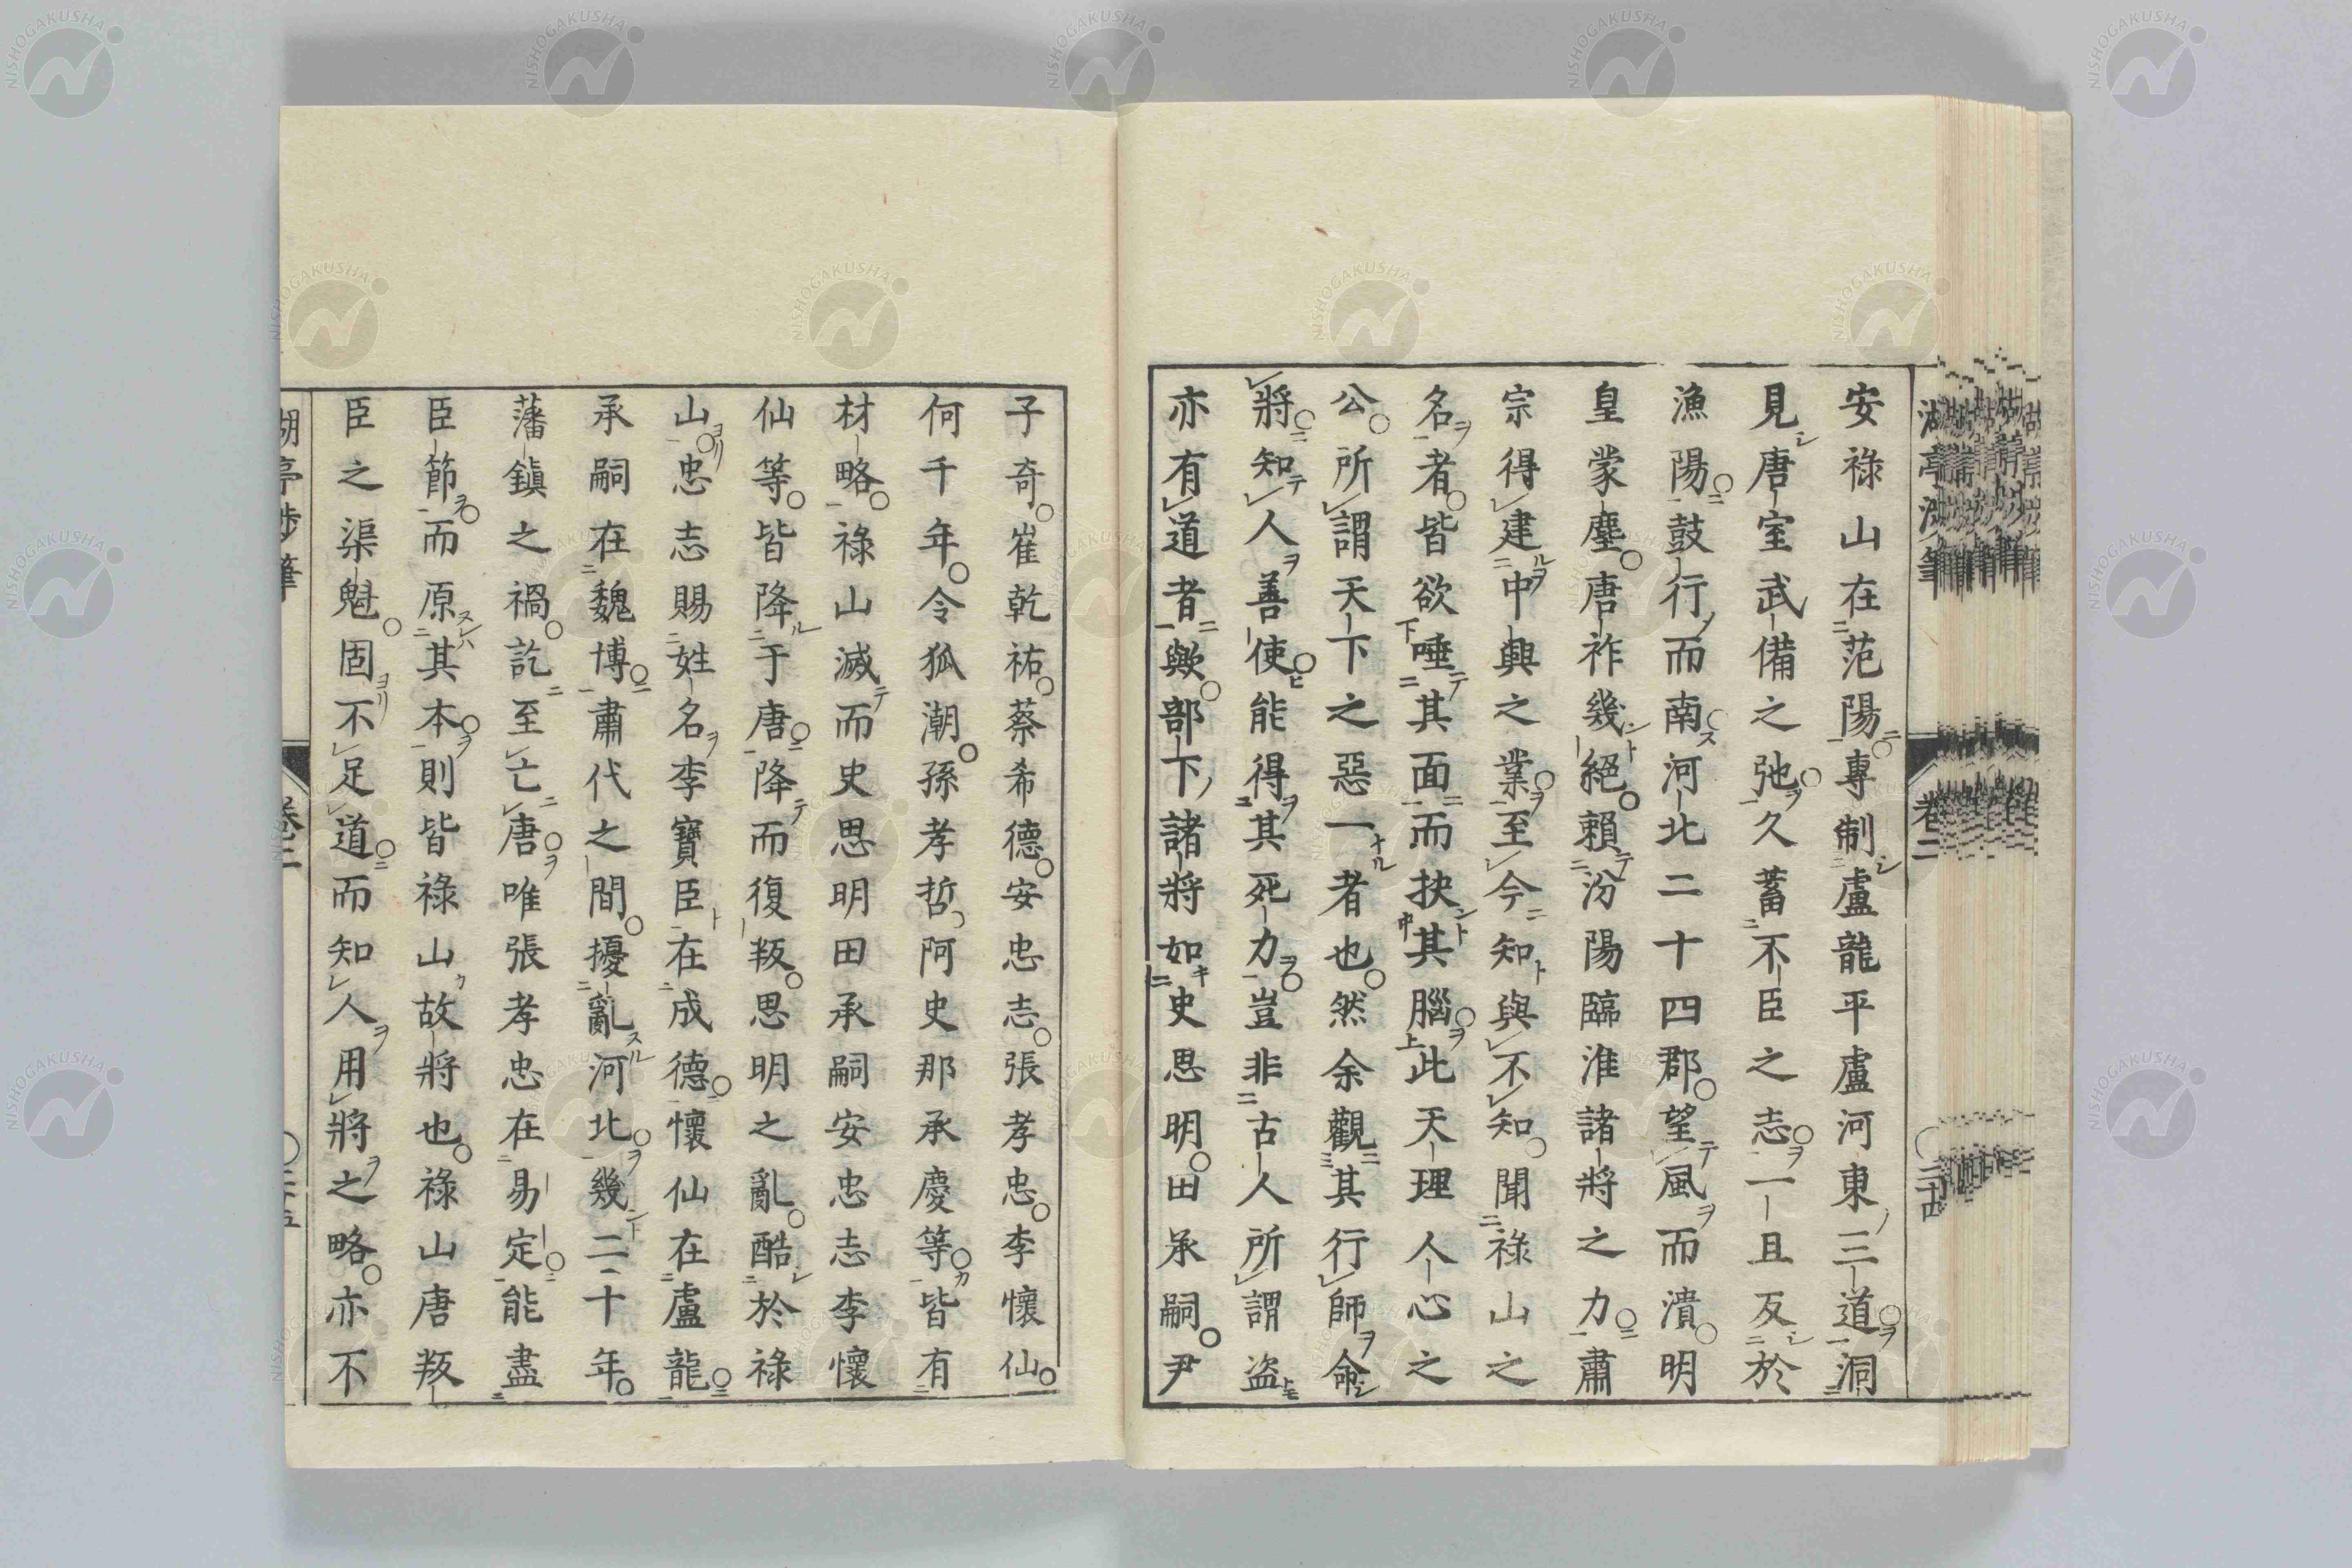 安祿山在范陽專制盧龍平盧河東三道洞
見唐室武備之弛久蓄不臣之志一旦反於
漁陽鼓行而南河北二十四郡望風而潰明
皇蒙塵唐祚幾絕賴汾陽臨淮諸將之力肅
宗得建中興之業至今知與不知聞祿山之
名者皆欲唾其面而抉其腦此天理人心之
公所謂天下之惡一者也然余觀其行師命
將知人善使能得其死力豈非古人所謂盜
亦有道者歟部下諸將如史思明田承嗣尹
子奇崔乾祐蔡希德安忠志張孝忠李懷仙
何千年令狐潮孫孝哲阿史那承慶等皆有
材略祿山滅而史思明田承嗣安忠志李懷
仙等皆降于唐降而復叛思明之亂酷於祿
山忠志賜姓名李寶臣在成德懷仙在盧龍
承嗣在魏博肅代之間擾亂河北幾二十年
藩鎭之禍訖至亡唐唯張孝忠在易定能盡
臣節而原其本則皆祿山故將也祿山唐叛
臣之渠魁固不足道而知人用將之略亦不
卷二
NISHOGAKUSHA